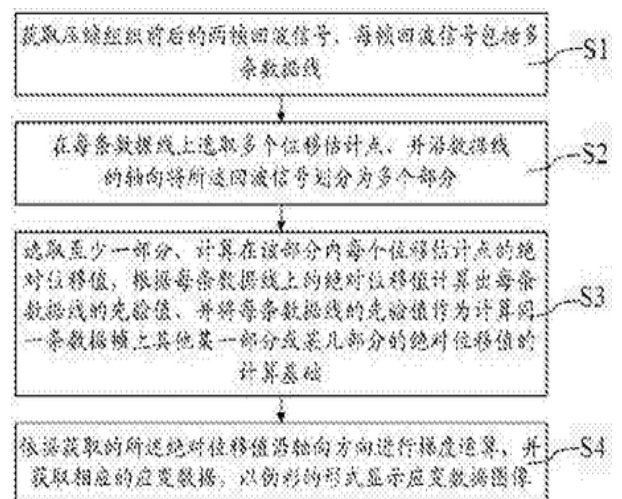 获取压缩组织前后的两帧回波信号，每帧回波信号包括多
条数据线
S1
在每条数据线上选取多个位移估计点，并沿数据线
的轴向将所述回波信号划分为多个部分
S2
选取至少一部分，计算在该部分内每个位移估计点的绝
对位移值，根据每条数据线上的绝对位移值计算出每条
数据线的先验值，并将每条数据线的先验值作为计算同
一条数据帧上其他某一部分或某几部分的绝对位移值的
计算基础
S3
依据获取的所述绝对位移值沿轴向方向进行梯度运算，并
获取相应的应变数据，以伪彩的形式显示应变数据图像
S4